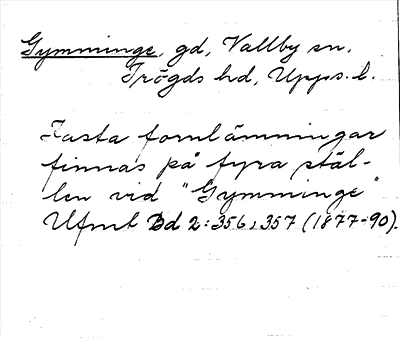 Gymminge, gd, Vallby sn,
Trögds hd, Upps. l.
Fasta fornlämningar
finnas på fyra stäl-
len vid "Gymminge"
Ufmt Bd 2:356,357 (1877-90).